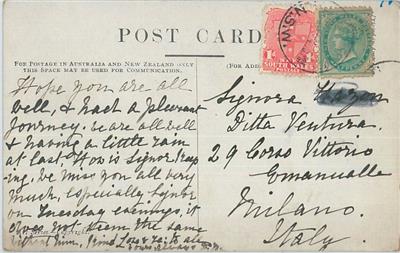 POST CARD
FOR POSTAGE IN AUSTRALIA AND NEW ZEALAND ONLY
THIS SPACE MAY BE USED FOR COMMUNICATION.
N.S.W.
1d
SOUTH WALES
POSTAGE
Hope you are all
well, & had a pleasant
journey. we are all well
& having a little rain
at last. How is Signor
ing, We miss you all very
much, especially Signor
on Tuesday evenings, it
does not seem the same
without him, kind to all
yours always
Signora
Ditta Ventura.
29 Corso Vittorio
Emanualle
Milano.
Italy.